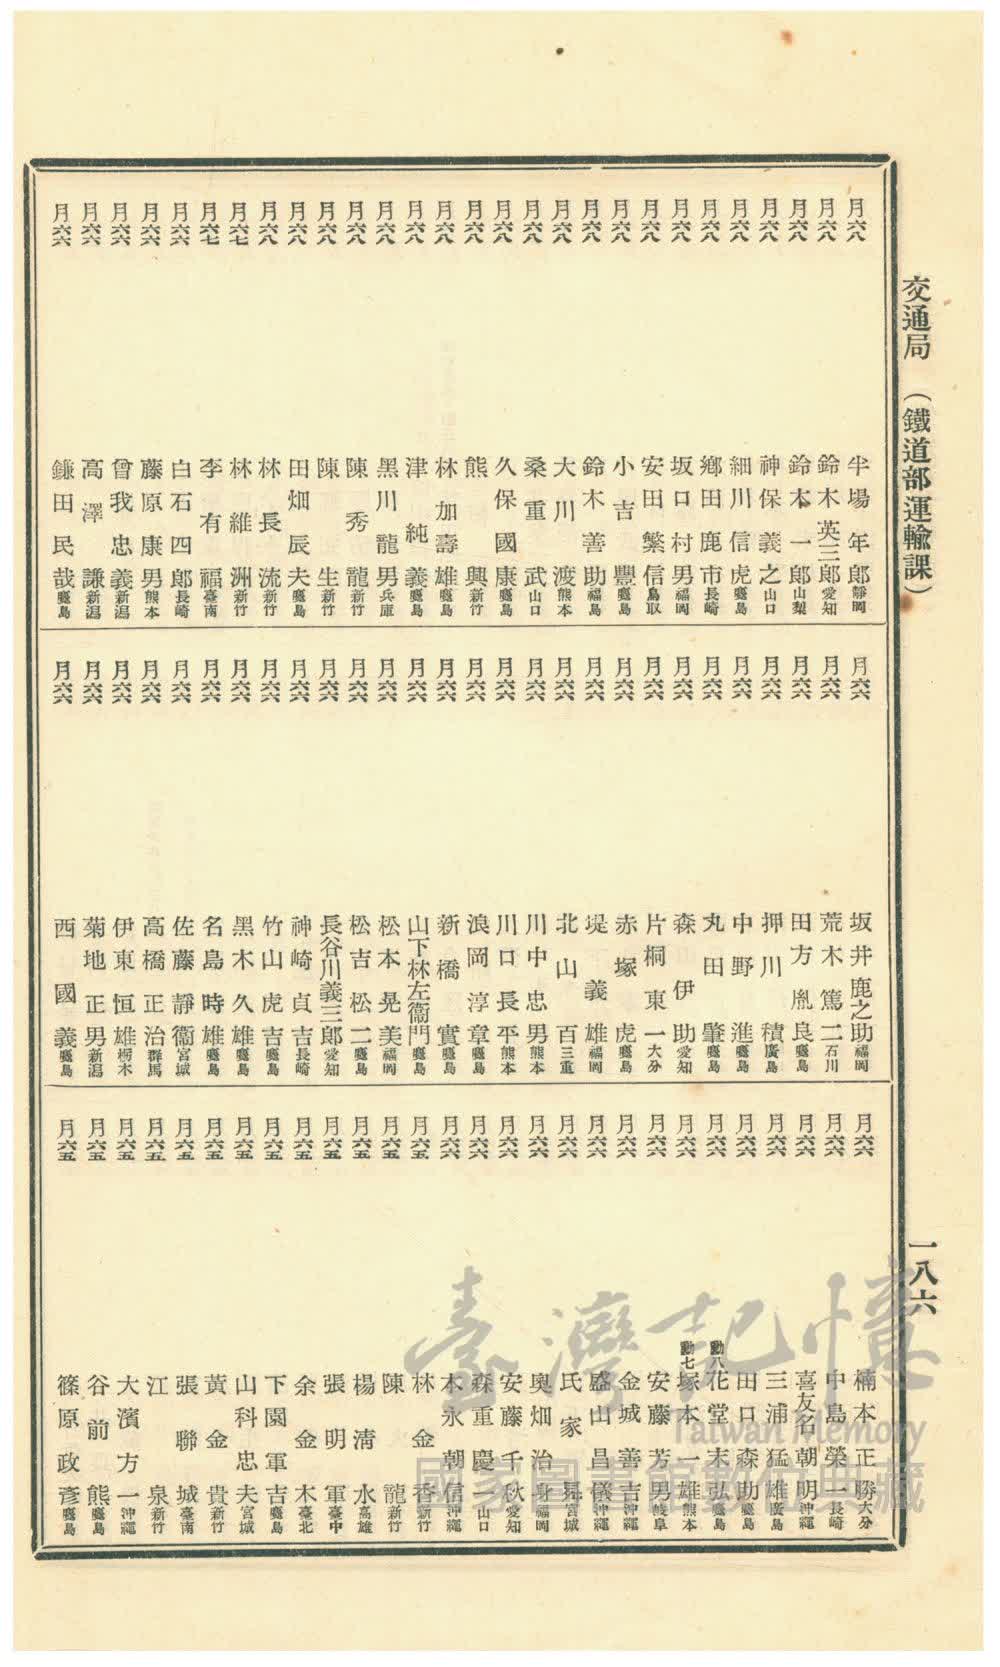 交通局 （鐵道部運輸課）
一八六
月六八 半場年郎 靜岡
月六八 鈴木英三郎 愛知
月六八 鈴木一郎 山梨
月六八 神保義之 山口
月六八 細川信虎 鹿島
月六八 鄕田鹿市 長崎
月六八 坂口村男 福岡
月六八 安田繁信 鳥取
月六八 小吉豐 鹿島
月六八 鈴木善助 福島
月六八 大川渡 熊本
月六八 桑重武 山口
月六八 久保國康 鹿島
月六八 熊興 新竹
月六八 林加壽雄 鹿島
月六八 津純義 鹿島
月六八 黑川龍男 兵庫
月六八 陳秀龍 新竹
月六八 陳生 新竹
月六八 田畑辰夫 鹿島
月六八 林長流 新竹
月六七 林維洲 新竹
月六七 李有福 臺南
月六六 白石四郎 長崎
月六六 藤原康男 熊本
月六六 曾我忠義 新潟
月六六 高澤謙 新潟
月六六 鎌田民哉 鹿島
月六六 坂井鹿之助 福岡
月六六 荒木篤二 石川
月六六 田方胤良 鹿島
月六六 押川積 廣島
月六六 中野進 鹿島
月六六 丸田肇 鹿島
月六六 森伊助 愛知
月六六 片桐東一 大分
月六六 赤塚虎 鹿島
月六六 堤義雄 福岡
月六六 北山百 三重
月六六 川中忠男 熊本
月六六 川口長平 熊本
月六六 浪岡淳章 鹿島
月六六 新橋實 鹿島
月六六 山下林左衞門 鹿島
月六六 松本晃美 福岡
月六六 松吉松二 鹿島
月六六 長谷川義三郎 愛知
月六六 神崎貞吉 長崎
月六六 竹山虎吉 鹿島
月六六 黑木久雄 鹿島
月六六 名島時雄 鹿島
月六六 佐藤靜衞 宮城
月六六 高橋正治 群馬
月六六 伊東恒雄 栃木
月六六 菊地正男 新潟
月六六 西國義 鹿島
月六六 楠本正勝 大分
月六六 中島榮一 長崎
月六六 喜友名朝明 沖繩
月六六 三浦猛雄 廣島
月六六 田口森助 鹿島
月六六 勳八 花堂末弘 鹿島
月六六 勳七 塚本一雄 熊本
月六六 安藤芳男 岐阜
月六六 金城善吉 沖繩
月六六 盛山昌儀 沖繩
月六六 氏家昇 宮城
月六六 奧畑治身 福岡
月六六 安藤千秋 愛知
月六六 森重慶二 山口
月六六 木永朝信 沖繩
月六五 林金香 新竹
月六五 陳龍 新竹
月六五 楊淸水 高雄
月六五 張明軍 臺中
月六五 余金木 臺北
月六五 下園軍吉 鹿島
月六五 山科忠夫 宮城
月六五 黃金貴 新竹
月六五 張聯城 臺南
月六五 江泉 新竹
月六五 大濱方一 沖繩
月六五 谷前熊 鹿島
月六五 篠原政彥 鹿島
臺灣記憶
Taiwan Memory
國家圖書館數位典藏